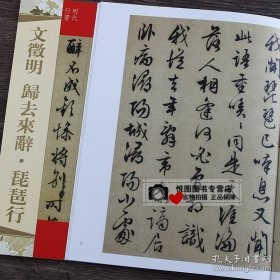 明代
行書
文徵明 歸去來辭·琵琶行
醉不成歡慘將別時
我聞琵琶已嘆息又聞
此語重唧唧同是天涯淪
落人相逢何必曾相識
我從去年辭帝京謫居
卧病潯陽城潯陽小處
悦图图书专营店
实物拍摄 正品保障